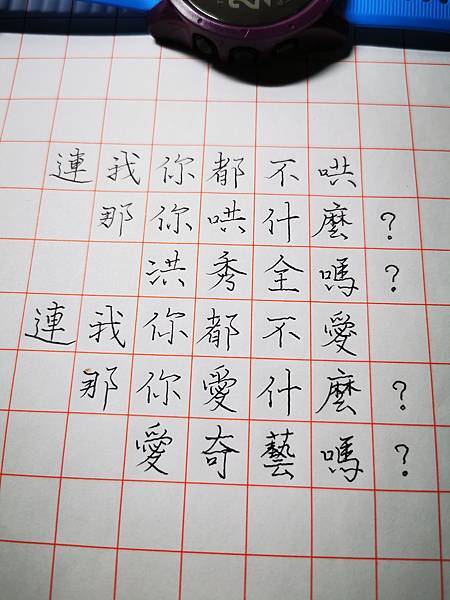 連我你都不哄
那你哄什麼？
洪秀全嗎？
連我你都不愛
那你愛什麼？
愛奇藝嗎？